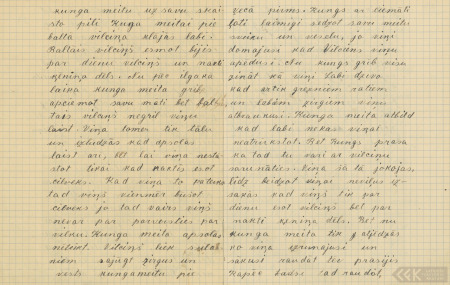 kunga meitu uz savu skai
sto pili. Kunga meitai pie
balta vilciņa klājas labi.
Baltais vilciņš ermot bijis
par dienu vilciņš un nakti
ķēniņa dēls. Nu pēc ilgāka
laika kunga meita grib
apciemot savu māti bet baltais
vilciņš negrib viņu
laist. Viņa tomēr tik lūdz
un izlūdzās kad apsolas
laist arī, bet lai viņa nestā
stot tikai kad naktīs esot
cilvēks. Kad viņa to pateikšot
tad viņš vienmēr būšot
cilvēks jo tad vairs viņš
nevar par pārvērsties par
vilku. Kunga meita apsolas
neteikt. Vilciņš liek sulai
ņiem sajūgt zirgus un
vests kungameitu pie
vecā pirms. Kungs ar ciemāti
ļoti laimīgi redzot savu meitu
sveiku un veselu, jo viņi
domājusi kad vilciņš viņu
apēdusi. Nu kungs grib visu
zināt kā viņi labi dzīvo
kad ar tik grezniem ratiem
un labām zirgiem viņu
atbraukusi. Kunga meita atbild
kad labi nekas viņai
neatrūkstot. Bet kungs prasa
ka tad tu vari ar vilciņu
sarunāties. Viņa sā tā jokojās,
līdz beidzot viņai nevilšus iz-
sakās kad viņš tik par
dienu esot vilciņš bet par
nakti ķēniņa dēls. Bet nu
kunga meita tik atjēdzās
ko viņa izrunājusi un
sākusi raudāt tēv prasījis
kāpēc bērns tad raudāt,